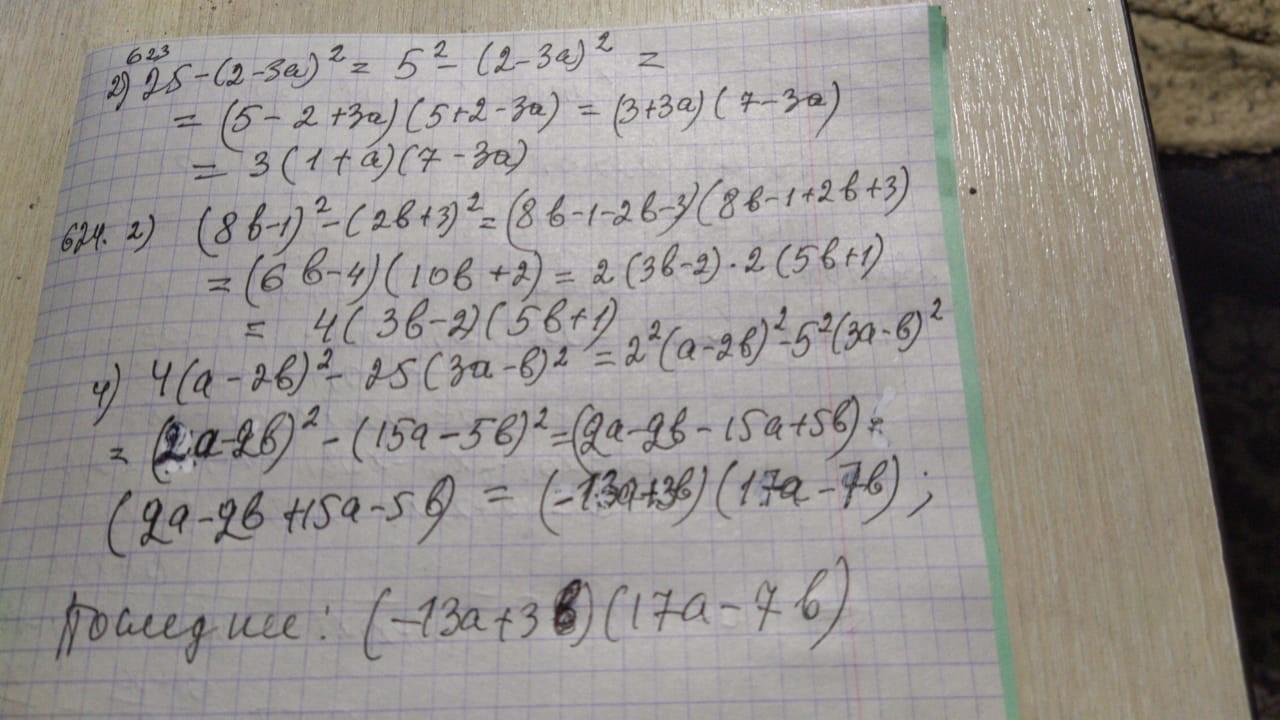 623
2) 25-(2-3a)² = 5² - (2-3a)² =
= (5-2+3a)(5+2-3a) = (3+3a)(7-3a)
= 3(1+a)(7-3a)
624. 2) (8в-1)²-(2в+3)²=(8в-1-2в-3)(8в-1+2в+3)
= (6в-4)(10в+2) = 2(3в-2)·2(5в+1)
= 4(3в-2)(5в+1)
4) 4(a-2в)²- 25(3a-в)² = 2²(a-2в)²-5²(3a-в)²
= (2a-2в)²-(15a-5в)²=(2a-2в-15a+5в)·
(2a-2в+15a-5в) = (-13a+3в)(17a-7в);
Последнее: (-13a+3в)(17a-7в)